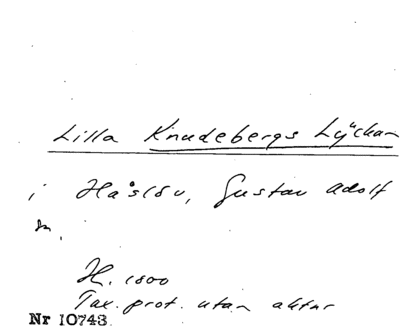 Lilla Knudebergs Lyckan
i Håslöv, Gustav Adolf
sn.
H. 1800
Tax. prot. utan aktnr
Nr 10743